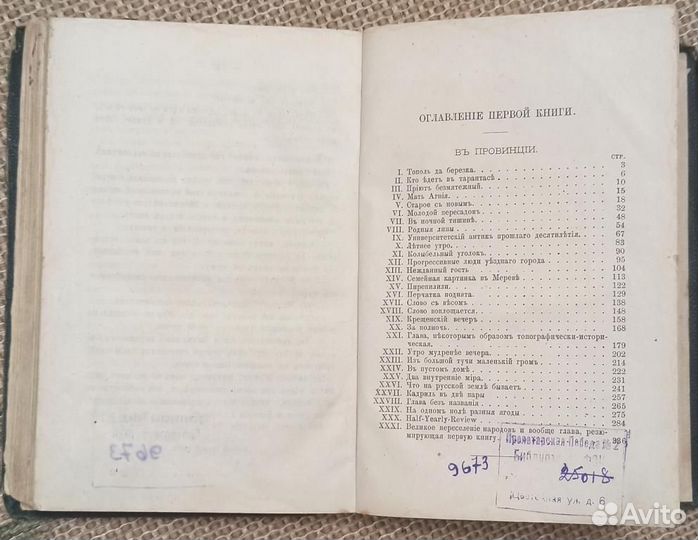 ОГЛАВЛЕНІЕ ПЕРВОЙ КНИГИ.
ВЪ ПРОВИНЦІИ.
СТР.
I. Тополь да березка. 3
II. Кто ѣдетъ въ тарантасѣ. 6
III. Пріютъ безмятежный. 10
IV. Мать Агнія. 15
V. Старое съ новымъ. 18
VI. Молодой пересадокъ. 32
VII. Въ ночной тишинѣ. 48
VIII. Родныя липы. 54
IX. Университетскій антикъ прошлаго десятилѣтія. 67
X. Лѣтнее утро. 83
XI. Колыбельный уголокъ. 90
XII. Прогрессивные люди уѣзднаго города. 95
XIII. Нежданный гость 104
XIV. Семейная картинка въ Меревѣ 113
XV. Перепилили. 122
XVI. Перчатка поднята. 129
XVII. Слово съ вѣсомъ. 138
XVIII. Слово воплощается. 148
XIX. Крещенскій вечеръ 158
XX. За полночь. 168
XXI. Глава, нѣкоторымъ образомъ топографически-истори-
ческая. 179
XXII. Утро мудренѣе вечера. 202
XXIII. Изъ большой тучи маленькій громъ. 214
XXIV. Въ пустомъ домѣ. 222
XXV. Два внутренніе міра. 231
XXVI. Что на русской землѣ бываетъ 241
XXVII. Кадриль въ двѣ пары 257
XXVIII. Глава безъ названія 265
XXIX. На одномъ полѣ разныя ягоды 275
XXX. Half-Yearly-Review. 284
XXXI. Великое переселеніе народовъ и вообще глава, резю-
мирующая первую книгу. 336
Пролетарская Победа № 2
9673
25018
ул. д. 6
9673
Avito